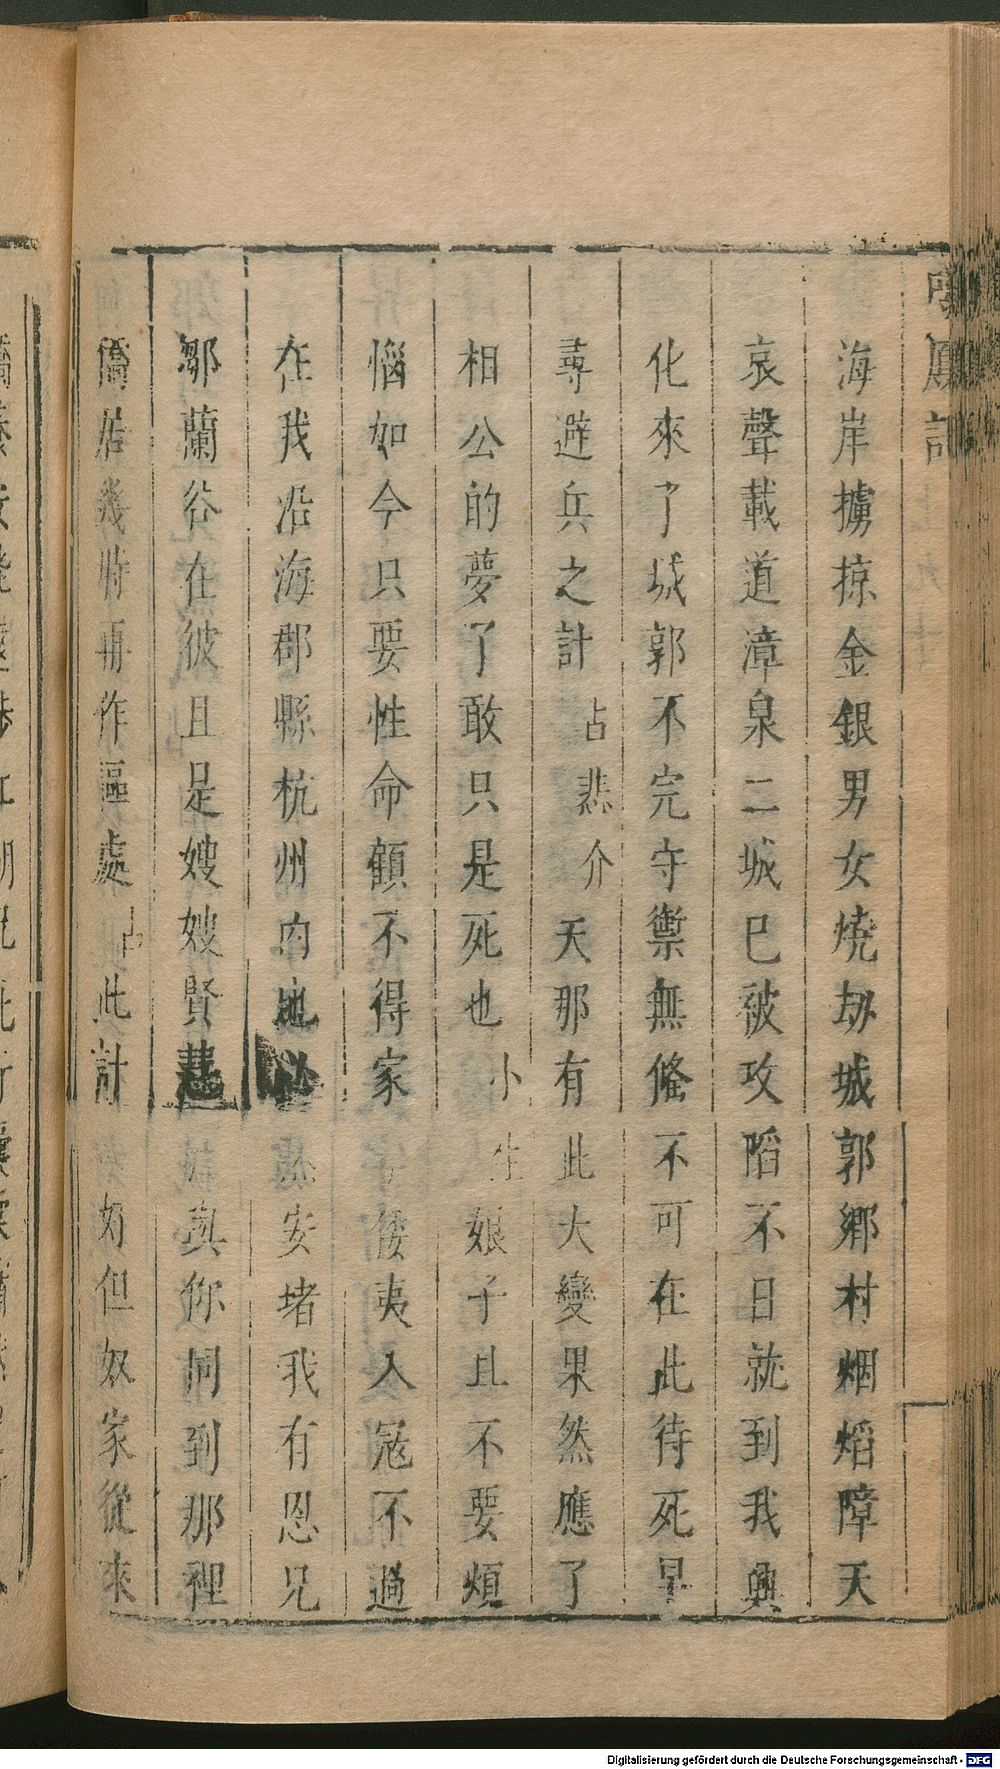 鳳記
海岸擄掠金銀男女燒劫城郭鄉村烟焰障天
哀聲載道漳泉二城已被攻陷不日就到我興
化來了城郭不完守禦無俻不可在此待死早
尋避兵之計占悲介天那有此大變果然應了
相公的夢了敢只是死也小生娘子且不要煩
惱如今只要性命顧不得家倭夷入冦不過
在我沿海郡縣杭州內地必然安堵我有恩兄
鄒蘭谷在彼且是嫂嫂賢慧與你同到那裡
僑居幾時再作區處占此計好但奴家從來
Digitalisierung gefördert durch die Deutsche Forschungsgemeinschaft - DFG